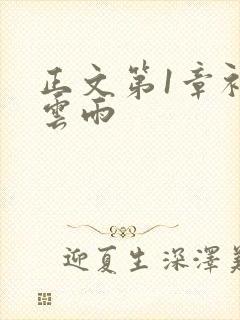 正文第1章初
雲雨
迎夏生深澤美